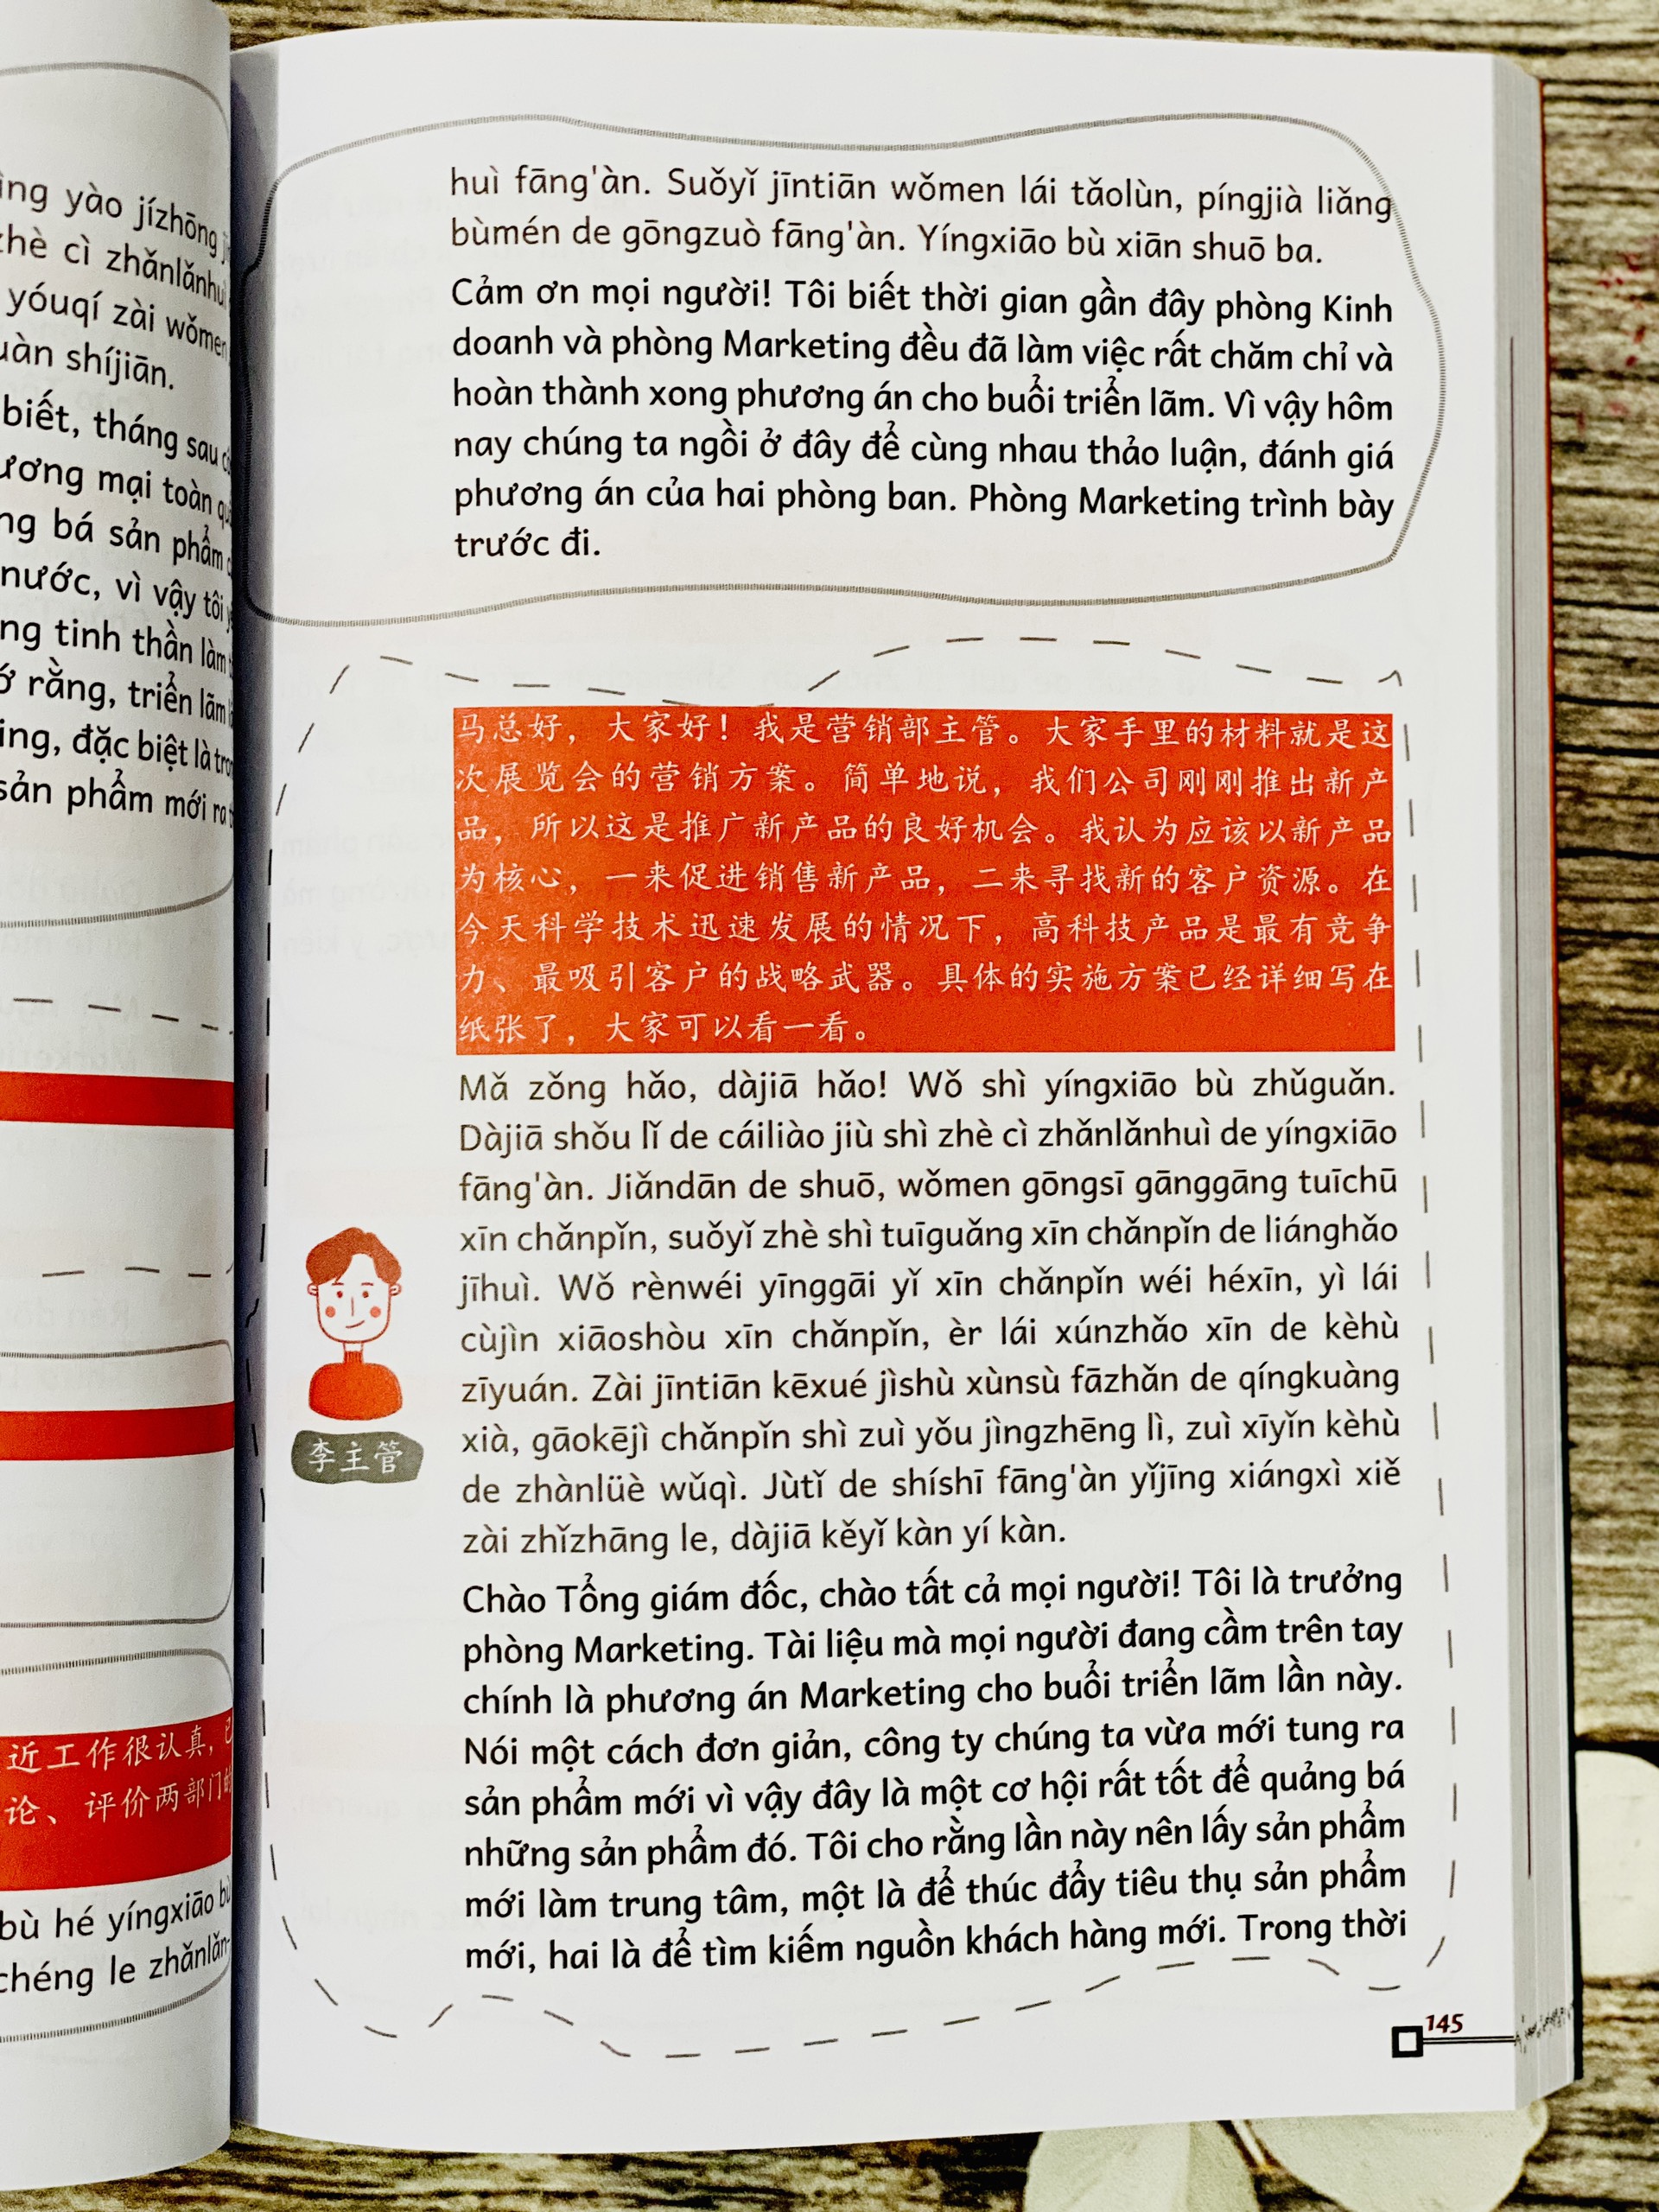 yào jízhōng
zhè cì zhǎnlǎnhuì
yóuqí zài wǒmen
shíjiān.
biết, tháng sau
ương mại toàn
bá sản phẩm
nước, vì vậy tôi
tinh thần làm
rằng, triển lãm
ing, đặc biệt là
sản phẩm mới ra
近工作很认真，已
论、评价两部门的
bù hé yíngxiāo bù
chéng le zhǎnlǎn-
huì fāng'àn. Suǒyǐ jīntiān wǒmen lái tǎolùn, píngjià liǎng
bùmén de gōngzuò fāng'àn. Yíngxiāo bù xiān shuō ba.
Cảm ơn mọi người! Tôi biết thời gian gần đây phòng Kinh
doanh và phòng Marketing đều đã làm việc rất chăm chỉ và
hoàn thành xong phương án cho buổi triển lãm. Vì vậy hôm
nay chúng ta ngồi ở đây để cùng nhau thảo luận, đánh giá
phương án của hai phòng ban. Phòng Marketing trình bày
trước đi.
马总好，大家好！我是营销部主管。大家手里的材料就是这
次展览会的营销方案。简单地说，我们公司刚刚推出新产
品，所以这是推广新产品的良好机会。我认为应该以新产品
为核心，一来促进销售新产品，二来寻找新的客户资源。在
今天科学技术迅速发展的情况下，高科技产品是最有竞争
力、最吸引客户的战略武器。具体的实施方案已经详细写在
纸张了，大家可以看一看。
Mǎ zǒng hǎo, dàjiā hǎo! Wǒ shì yíngxiāo bù zhǔguǎn.
Dàjiā shǒu lǐ de cáiliào jiù shì zhè cì zhǎnlǎnhuì de yíngxiāo
fāng'àn. Jiǎndān de shuō, wǒmen gōngsī gānggāng tuīchū
xīn chǎnpǐn, suǒyǐ zhè shì tuīguǎng xīn chǎnpǐn de liánghǎo
jīhuì. Wǒ rènwéi yīnggāi yǐ xīn chǎnpǐn wéi héxīn, yì lái
cùjìn xiāoshòu xīn chǎnpǐn, èr lái xúnzhǎo xīn de kèhù
zīyuán. Zài jīntiān kēxué jìshù xùnsù fāzhǎn de qíngkuàng
xià, gāokējì chǎnpǐn shì zuì yǒu jìngzhēng lì, zuì xīyǐn kèhù
de zhànlüè wǔqì. Jùtǐ de shíshī fāng'àn yǐjīng xiángxì xiě
zài zhǐzhāng le, dàjiā kěyǐ kàn yí kàn.
李主管
Chào Tổng giám đốc, chào tất cả mọi người! Tôi là trưởng
phòng Marketing. Tài liệu mà mọi người đang cầm trên tay
chính là phương án Marketing cho buổi triển lãm lần này.
Nói một cách đơn giản, công ty chúng ta vừa mới tung ra
sản phẩm mới vì vậy đây là một cơ hội rất tốt để quảng bá
những sản phẩm đó. Tôi cho rằng lần này nên lấy sản phẩm
mới làm trung tâm, một là để thúc đẩy tiêu thụ sản phẩm
mới, hai là để tìm kiếm nguồn khách hàng mới. Trong thời
145